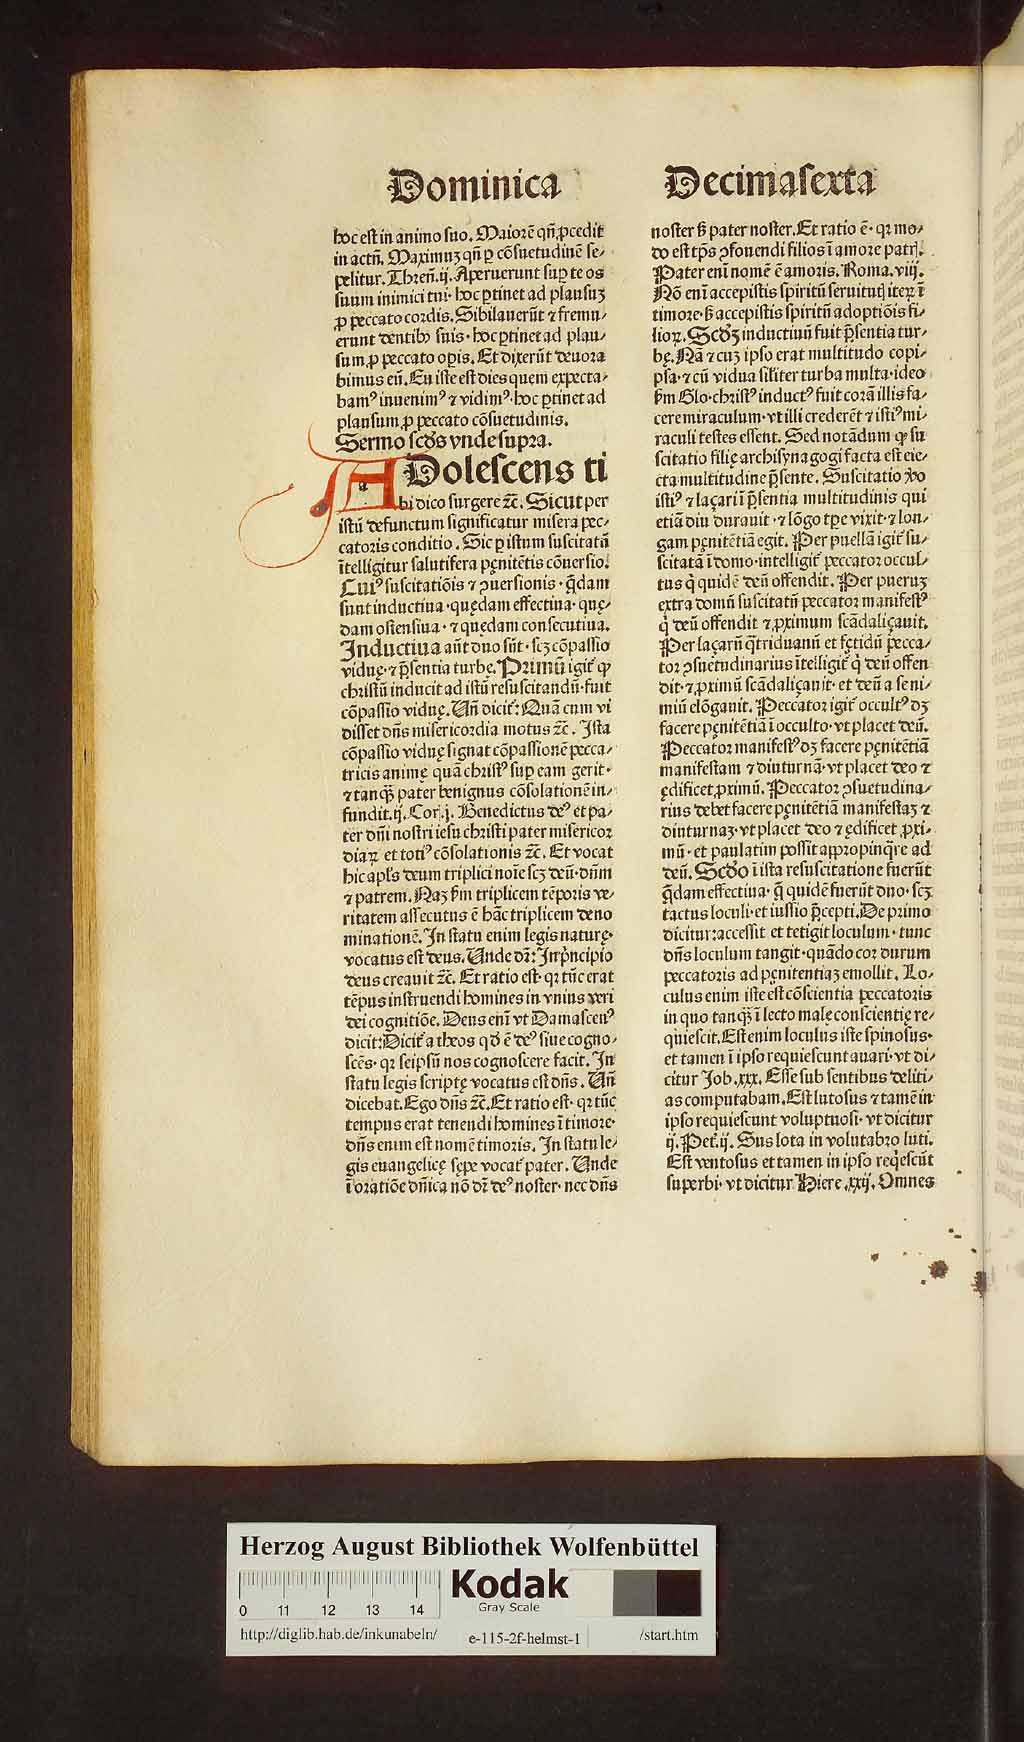 Dominica
hoc est in animo suo. Maiorē qñ ꝓcedit
in actū. Maximuʒ qñ ꝑ cōsuetudinē se⸗
pelitur. Thren̄. ij. Aperuerunt suꝑ te os
suum inimici tui· hoc ꝑtinet ad plausuʒ
ꝓ peccato cordis. Sibilauerūt ⁊ fremu⸗
erunt dentibꝰ suis· hoc ꝑtinet ad plau⸗
sum ꝓ peccato oꝑis. Et dixerūt deuora
bimus eū. En iste est dies quem expecta⸗
bamꝰ inuenimꝰ ⁊ vidimꝰ· hoc ꝑtinet ad
plausum ꝓ peccato cōsuetudinis.
Sermo scd̄s vnde supra.
ADolescens ti
bi dico surgere ⁊c̄. Sicut per
istū defunctum significatur misera pec⸗
catoris conditio. Sic ꝑ istum suscitatū
ītelligitur salutifera pęnitētis cōuersio.
Cuiꝰ suscitatiōis ⁊ ꝯuersionis· q̄dam
sunt inductiua· quędam effectiua· quę⸗
dam ostensiua· ⁊ quędam consecutiua.
Inductiua aūt duo sūt· scʒ cōpassio
viduę· ⁊ p̄sentia turbę. Primū igit᷑ ꝙ
christū inducit ad istū resuscitandū· fuit
cōpassio viduę. Uñ dicit᷑: Quā cum vi
disset dn̄s misericordia motus ⁊c̄. Ista
cōpassio viduę signat cōpassionē pecca⸗
tricis animę quā christꝰ suꝑ eam gerit·
⁊ tanqʒ̄ pater benignus cōsolationē in⸗
fundit. ij. Cor. j. Benedictus deꝰ et pa⸗
ter dn̄i nostri iesu christi pater misericor
diaꝝ et totiꝰ cōsolationis ⁊c̄. Et vocat
hic apl̄s deum triplici noīe scʒ deū· dn̄m
⁊ patrem. Naʒ ẜm triplicem tēporis ve⸗
ritatem assecutus ē hāc triplicem deno
minationē. In statu enim legis naturę·
vocatus est deus. Unde dr̄: In pͥncipio
deus creauit ⁊c̄. Et ratio est· qꝛ tūc erat
tēpus instruendi homines in vnius veri
dei cognitiōe. Deus eni᷑ vt Damascenꝰ
dicit: Dicit᷑ a theos qd̄ ē deꝰ siue cogno⸗
scēs· qꝛ seipsū nos cognoscere facit. In
statu legis scriptę vocatus est dn̄s. Uñ
dicebat. Ego dn̄s ⁊c̄. Et ratio est· qꝛ tūc
tempus erat tenendi homines ī timore·
dn̄s enim est nomē timoris. In statu le⸗
gis euangelicę sępe vocat᷑ pater. Unde
ī oratiōe dn̄ica nō dr̄ deꝰ noster· nec dn̄s
Decimasexta
noster ẜ pater noster. Et ratio ē· qꝛ mo⸗
do est tp̄s ꝯfouendi filios ī amore patrꝭ.
Pater eni᷑ nomē ē amoris. Roma. viij.
Nō eni᷑ accepistis spiritū seruitutꝭ iteꝝ ī
timore· ẜ accepistis spiritū adoptiōis fi⸗
lioꝝ. Scd̄ʒ inductiuū fuit p̄sentia tur⸗
bę. Nā ⁊ cuʒ ipso erat multitudo copi⸗
osa· ⁊ cū vidua sil̄iter turba multa· ideo
ẜm Glo· christꝰ inductꝰ fuit corā illis fa⸗
cere miraculum· vt illi crederēt ⁊ istiꝰ mi⸗
raculi testes essent. Sed notādum ꝙ su
scitatio filię archisynagogi facta est eie⸗
cta multitudine p̄sente. Suscitatio v̓o
istiꝰ ⁊ laçari ī p̄sentia multitudinis qui
etiā diu durauit· ⁊ lōgo tꝑe vixit· ⁊ lon⸗
gam pęnitētiā egit. Per puellā igit᷑ su⸗
scitatā ī domo· intelligit᷑ peccator occul⸗
tus qͥ quidē deū offendit. Per pueruʒ
extra domū suscitatū peccator manifestꝰ
qͥ deū offendit ⁊ ꝓximum scādaliçauit.
Per laçarū q̄triduanū et fętidū pecca⸗
tor ꝯsuetudinarius ītelligit᷑ qͥ deū offen
dit· ⁊ ꝓximū scādaliçauit· et deū a se ni⸗
miū elōgauit. Peccator igit᷑ occultꝰ dʒ
facere pęnitētiā ī occulto· vt placet deū.
Peccator manifestꝰ dʒ facere pęnitētiā
manifestam ⁊ diuturnā· vt placet deo ⁊
ędificet ꝓximū. Peccator ꝯsuetudina⸗
rius debet facere pęnitētiā manifestaʒ ⁊
diuturnaʒ· vt placet deo ⁊ ędificet ꝓxi⸗
mū· et paulatim possit appropinq̄re ad
deū. Scd̄o ī ista resuscitatione fuerūt
q̄dam effectiua· q̄ quidē fuerūt duo· scʒ
tactus loculi· et iussio p̄cepti. De primo
dicitur: accessit et tetigit loculum· tunc
dn̄s loculum tangit· quādo cor durum
peccatoris ad pęnitentiaʒ emollit. Lo⸗
culus enim iste est cōscientia peccatoris
in quo tanqʒ̄ ī lecto malę conscientię re⸗
quiescit. Est enim loculus iste spinosus·
et tamen ī ipso requiescunt auari· vt di⸗
citur Job. xxx. Esse sub sentibus deliti⸗
as computabam. Est lutosus ⁊ tamē in
ipso requiescunt voluptuosi· vt dicitur
ij. Pet᷑. ij. Sus lota in volutabro luti.
Est ventosus et tamen in ipso reqͥescūt
superbi· vt dicitur Hiere. xxij. Omnes
Herzog August Bibliothek Wolfenbüttel
0 11 12 13 14
Kodak
Gray Scale
http://diglib.hab.de/inkunabeln/ e-115-2f-helmst-1 /start.htm